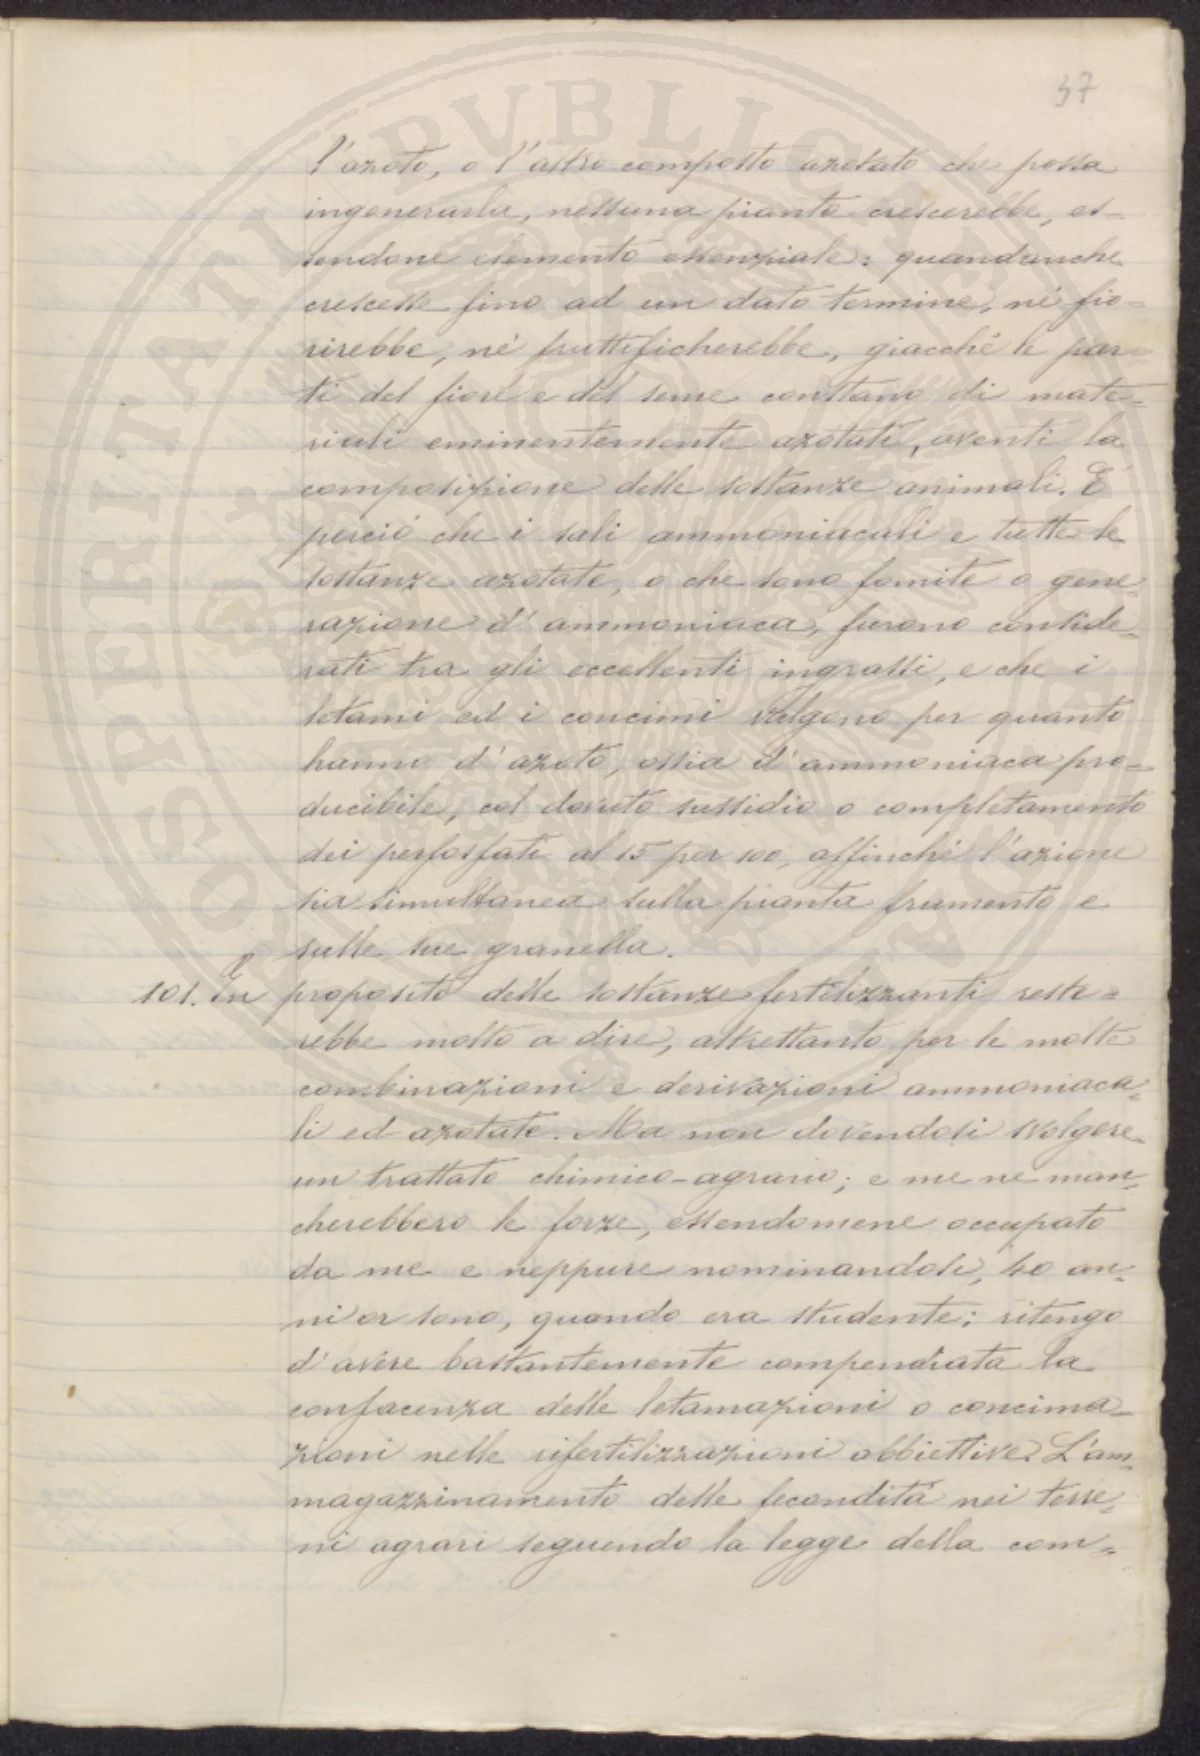 37
l'azoto, o l'altro composto azotato che possa
ingenerarla, nessuna pianta crescerebbe, es-
sendone elemento essenziale: quandanche
crescesse fino ad un dato termine, né fio-
rirebbe, né frutteficherebbe, giacché le par-
ti del fiore e del seme constano di mate-
riali eminentemente azotati, aventi la
composizione delle sostanze animali. E'
perciò che i sali ammoniacali e tutte le
sostanze azotate, o che sono fomite o gene-
razione d'ammoniaca, furono conside-
rati tra gli eccellenti ingrassi, e che i
letami ed i concimi valgono per quanto
hanno d'azoto, ossia d'ammoniaca pro-
ducibile, col dovuto sussidio o completamento
dei perfosfati al 15 per 100, affinché l'azione
sia simultanea sulla pianta frumento e
sulle sue granella.
101. In proposito delle sostanze fertilizzanti reste-
rebbe molto a dire, altrettanto per le molte
combinazioni e derivazioni ammoniaca-
li ed azotate. Ma non dovendosi svolgere
un trattato chimico-agrario; e me ne man-
cherebbero le forze, essendomene occupato
da me e neppure nominandole, 40 an-
ni or sono, quando era studente; ritengo
d'avere bastantemente compendiata la
confacenza delle letamazioni o concima-
zioni nelle rifertilizzazioni obbiettive. L'am-
magazzinamento delle fecondità nei terre-
ni agrari seguendo la legge della com-
PROSPERITATI PVBLICAE